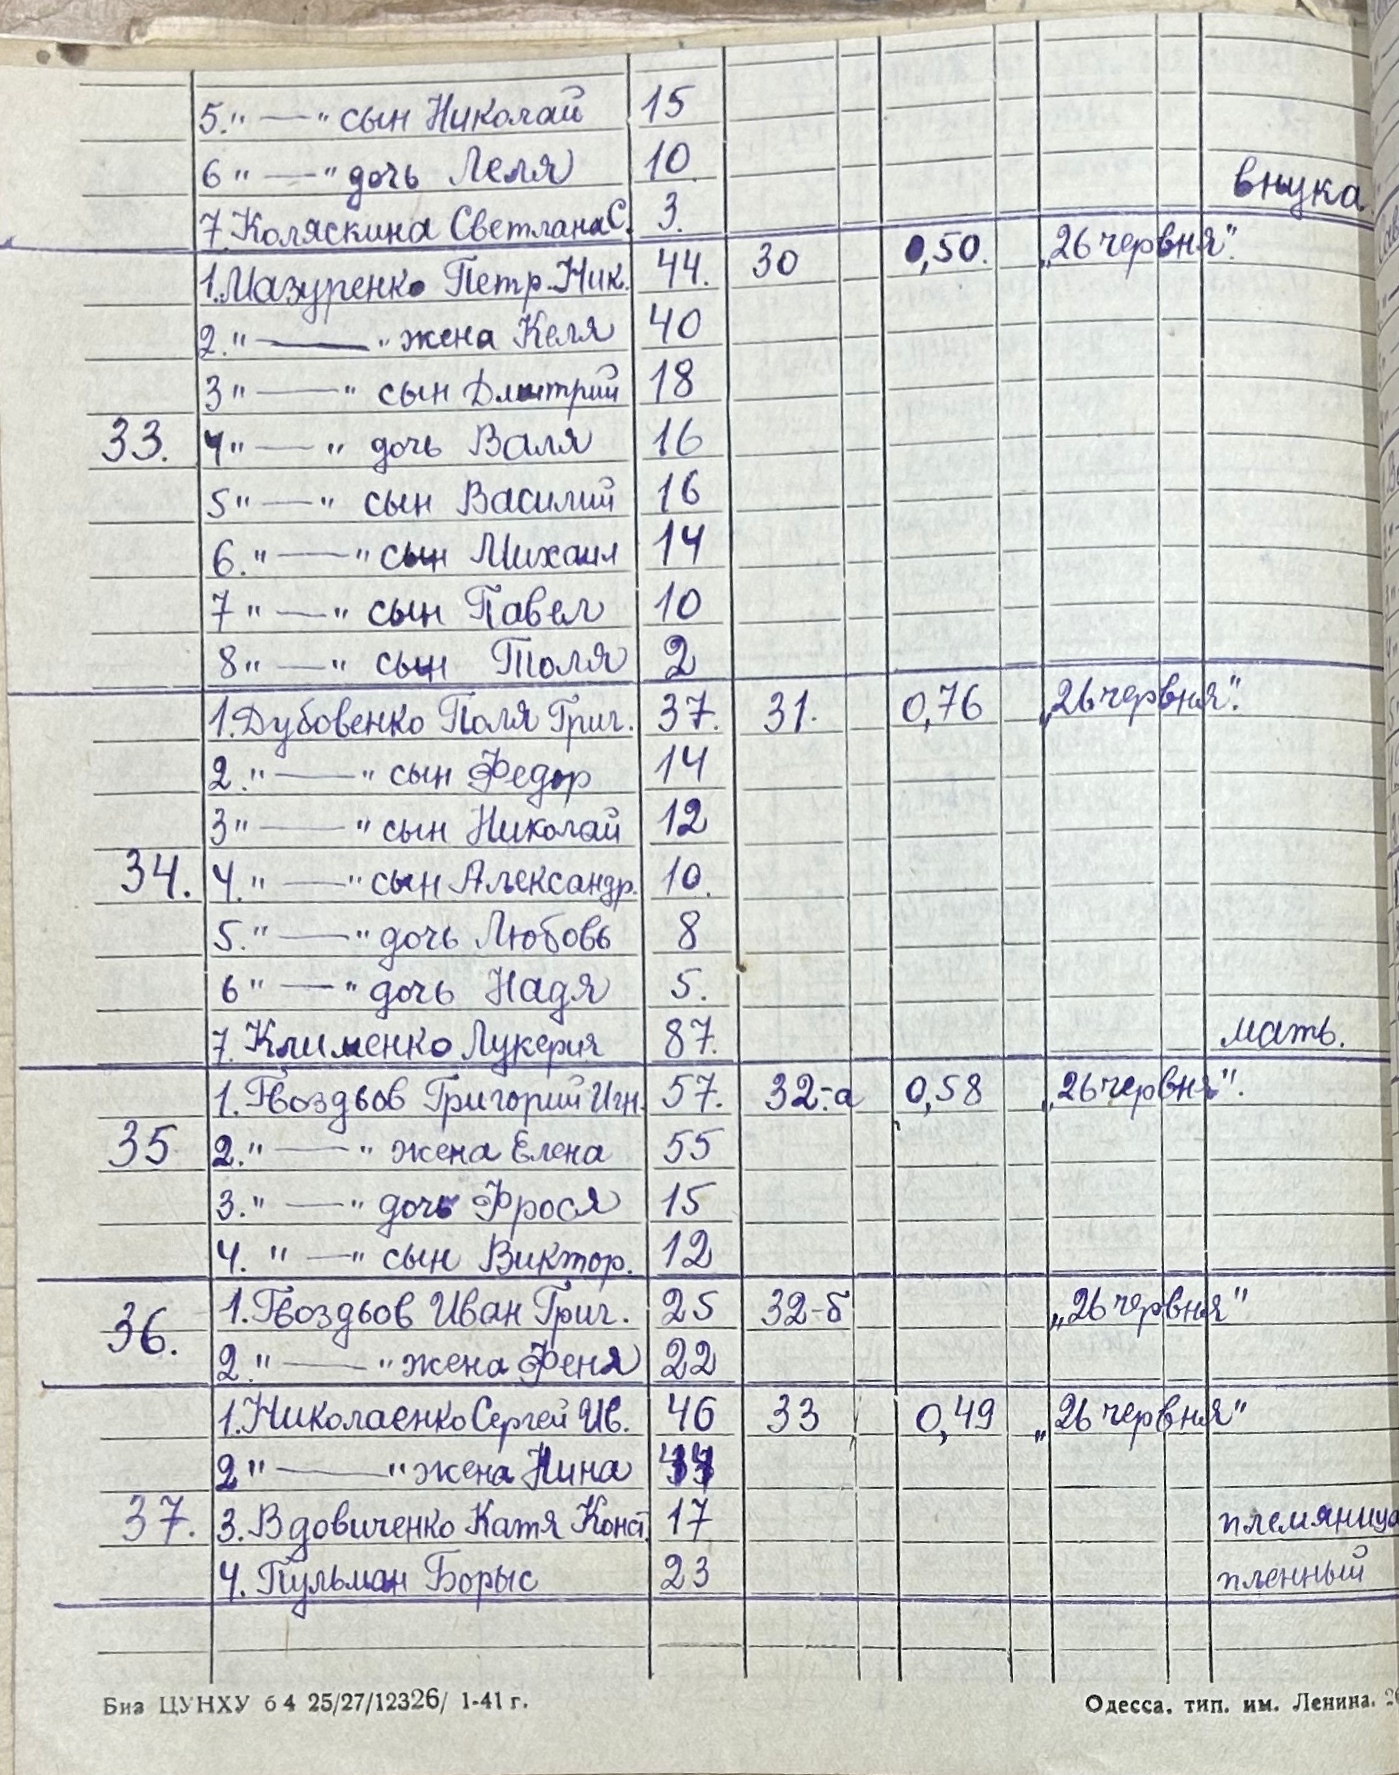 5. " — " сын Николай 15
6 " — " дочь Леля 10 внука
7. Коляскина Светлана С. 3.
1. Мазуренко Петр. Ник. 44. 30 0,50. „26 червня".
2. " — " жена Келя 40
3 " — " сын Дмитрий 18
33. 4 " — " дочь Валя 16
5 " — " сын Василий 16
6. " — " сын Михаил 14
7 " — " сын Павел 10
8 " — " сын Толя 2
1. Дубовенко Поля Григ. 37. 31. 0,76 „26 червня".
2. " — " сын Федор 14
3 " — " сын Николай 12
34. 4. " — " сын Александр. 10.
5. " — " дочь Любовь 8
6 " — " дочь Надя 5.
7. Клименко Лукерия 87. мать.
1. Гвоздьов Григорий Игн. 57. 32-а 0,58 „26 червня".
35 2. " — " жена Елена 55
3. " — " дочь Фрося 15
4. " — " сын Виктор. 12
36. 1. Гвоздьов Иван Григ. 25 32-б „26 червня"
2 " — " жена Феня 22
1. Николаенко Сергей Ив. 46 33 0,49 „26 червня"
2 " — " жена Нина
37. 3. Вдовиченко Катя Конст. 17 племяница
4. Пульман Борыс 23 пленный
Биз ЦУНХУ б 4 25/27/12326/ 1-41 г. Одесса. тип. им. Ленина.